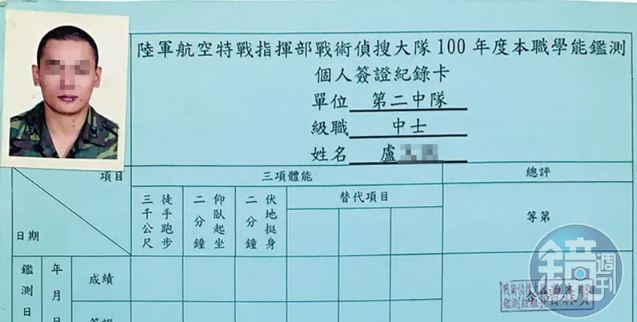 陸軍航空特戰指揮部戰術偵搜大隊100年度本職學能鑑測
個人簽證紀錄卡
單位 第二中隊
級職 中士
姓名 盧
項目 三項體能 總評
日期 徒手跑步三千公尺 仰臥起坐二分鐘 伏地挺身二分鐘 替代項目 等第
鑑測日 年月 成績
鏡週刊